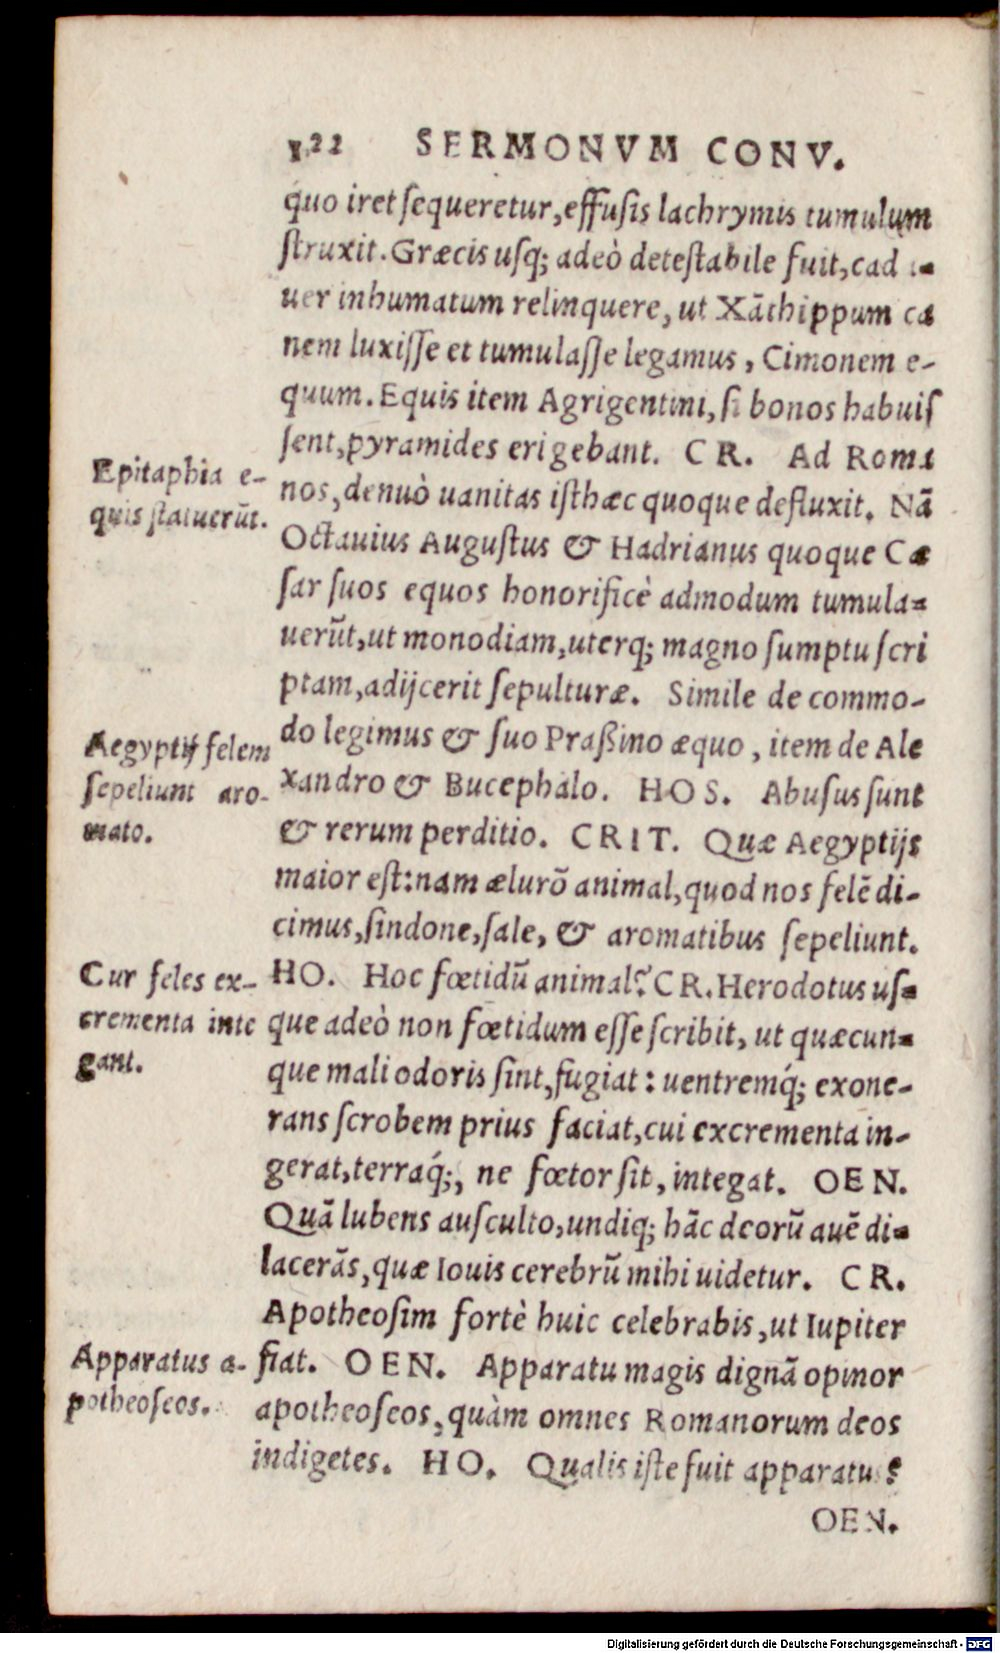 122 SERMONVM CONV.
quo iret ſequeretur, effuſis lachrymis tumulum
ſtruxit. Græcis uſq; adeò deteſtabile fuit, cad
uer inhumatum relinquere, ut Xãthippum ca
nem luxiſſe et tumulaſſe legamus, Cimonem e-
quum. Equis item Agrigentini, ſi bonos habuiſ
ſent, pyramides erigebant. CR. Ad Roma
nos, denuò uanitas iſthæc quoque defluxit. Nã
Octauius Auguſtus & Hadrianus quoque Cæ
ſar ſuos equos honorificè admodum tumula-
uerũt, ut monodiam, uterq; magno ſumptu ſcri
ptam, adijcerit ſepulturæ. Simile de commo-
do legimus & ſuo Praßino æquo, item de Ale
xandro & Bucephalo. HOS. Abuſus ſunt
& rerum perditio. CRIT. Quæ Aegyptijs
maior eſt: nam ælurõ animal, quod nos felẽ di-
cimus, ſindone, ſale, & aromatibus ſepeliunt.
HO. Hoc fœtidũ animal? CR. Herodotus uſ-
que adeò non fœtidum eſſe ſcribit, ut quæcun-
que mali odoris ſint, fugiat: uentremq́; exone-
rans ſcrobem prius faciat, cui excrementa in-
gerat, terraq́;, ne fœtor ſit, integat. OEN.
Quã lubens auſculto, undiq; hãc deorũ auẽ di-
lacerãs, quæ Iouis cerebrũ mihi uidetur. CR.
Apotheoſim fortè huic celebrabis, ut Iupiter
fiat. OEN. Apparatu magis dignã opinor
apotheoſeos, quàm omnes Romanorum deos
indigetes. HO. Qualis iſte fuit apparatus?
OEN.
Epitaphia e-
quis ſtatuerũt.
Aegyptij felem
ſepeliunt aro-
mato.
Cur feles ex-
crementa inte
gant.
Apparatus a-
potheoſeos.
Digitalisierung gefördert durch die Deutsche Forschungsgemeinschaft - DFG